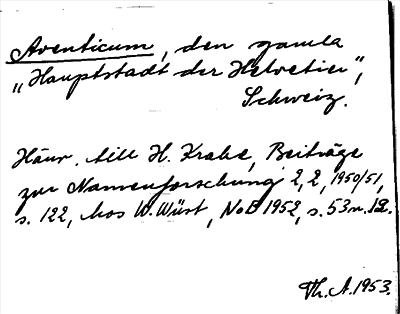 Aventicum, den gamla
"Hauptstadt der Helvetier",
Schweiz.
Hänv. till H. Krahe, Beiträge
zur Namenforschung 2,2, 1950/51,
s. 122, hos W. Wüst, NoB 1952, s. 53 n. 12.
Th. A. 1953.